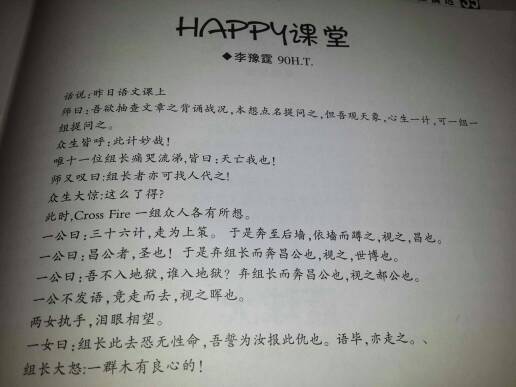 HAPPY课堂
◆李豫霆 90H.T.
话说:昨日语文课上
师曰:吾欲抽查文章之背诵战况,本想点名提问之,但吾观天象,心生一计,可一组一
组提问之。
众生皆呼:此计妙哉!
唯十一位组长痛哭流涕,皆曰:天亡我也!
师又叹曰:组长者亦可找人代之!
众生大惊:这么了得?
此时,Cross Fire 一组众人各有所想。
一公曰:三十六计,走为上策。 于是奔至后墙,依墙而蹲之,视之,昌也。
一公曰:昌公者,圣也! 于是弃组长而奔昌公也,视之,世博也。
一公曰:吾不入地狱,谁入地狱? 弃组长而奔昌公也,视之郝公也。
一公不发语,竞走而去,视之晖也。
两女执手,泪眼相望。
一女曰:组长此去恐无性命,吾誓为汝报此仇也。语毕,亦走之。、
组长大怒:一群木有良心的!